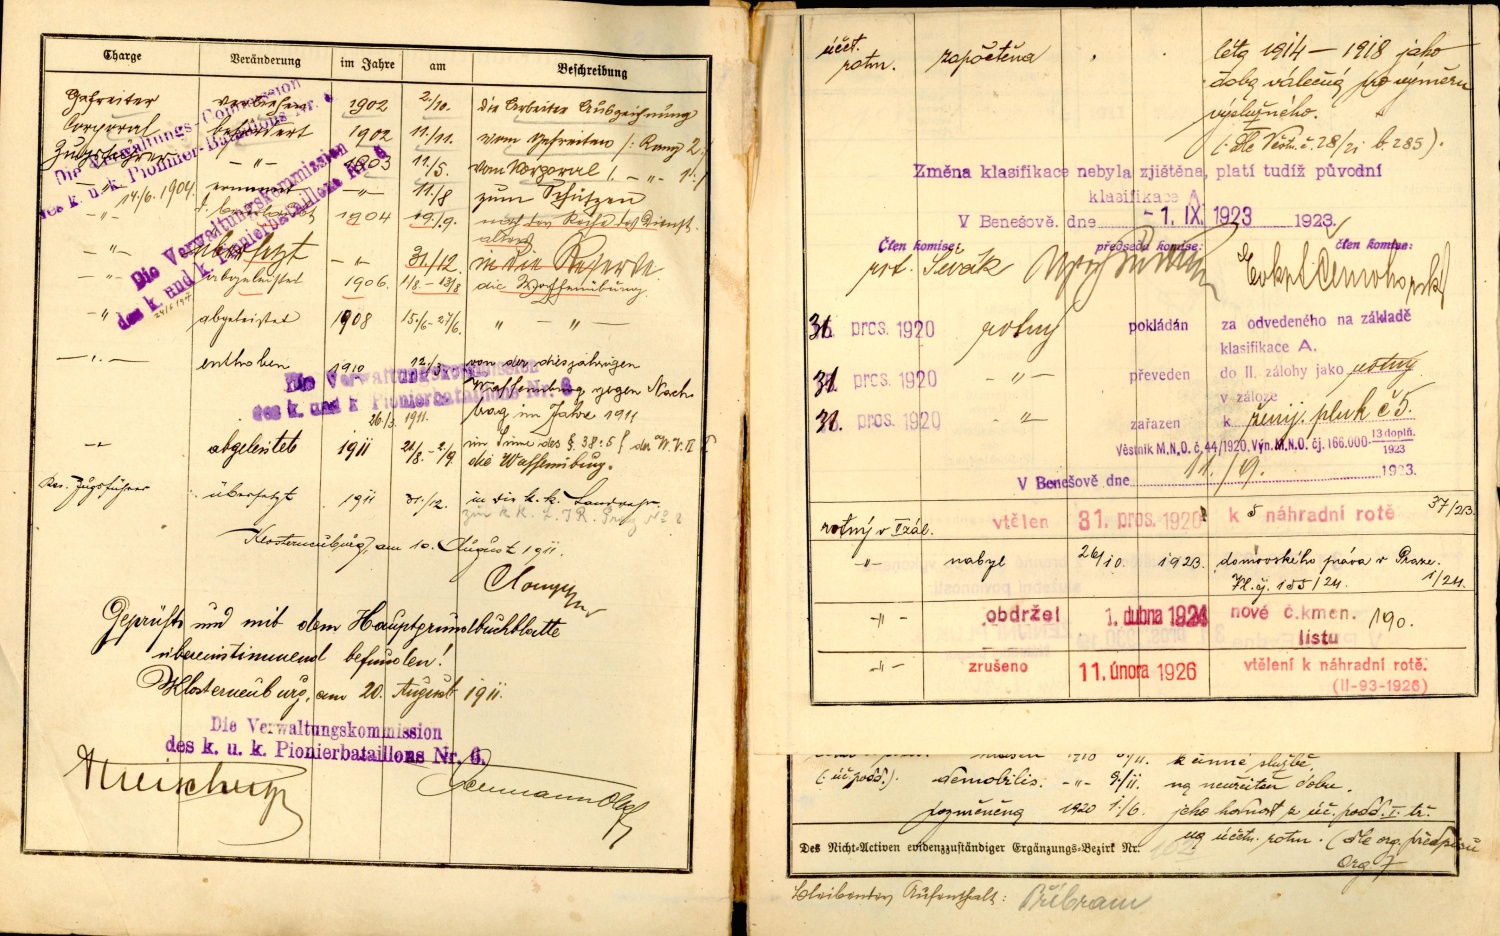 Charge Veränderung im Jahre am Beschreibung
Gefreiter verliehen 1902 2./10. die Arbeiter Auszeichnung
Corporal befördert 1902 11/11. vom Gefreiten /: Rang 2 :/
Zugsführer -"- 1903 11/5. vom Korporal /: -"- 1 :/
-"- ernannt -"- 11/8 zum Schützen
14./6. 1904.
-"- 1904 19./9. nach der Reihe des Dienst-
alters
-"- übersetzt -"- 31/12. in die Reserve
-"- abgeleistet 1906. 1/8 - 13/8 die Waffenübung.
-"- abgeleistet 1908 15./6 - 27/6. " -"-
-"- enthoben 1910 12./3. von der diesjährigen
Waffenübung gegen Nach-
26./3. 1911. holung im Jahre 1911
-"- abgeleistet 1911 21/8. - 2/9. im Sinne des § 38:5 der W.V. II
die Waffenübung.
Res. Zugsführer übersetzt 1911 31./12. in die k.k. Landwehr
zum k.k. L.I.R. Prag No 8
Klosterneuburg, am 10. August 1911.
Die Verwaltungs-Commission
des k. u. k. Pionier-Bataillons Nr. 6
Die Verwaltungskommission
des k. und k. Pionierbataillons Nr. 6
Die Verwaltungskommission
des k. und k Pionierbataillons Nr. 6
Geprüft und mit dem Hauptgrundbuchblatte
übereinstimmend befunden!
Klosterneuburg, am 20. August 1911.
Die Verwaltungskommission
des k. u. k. Pionierbataillons Nr. 6.
účet. rotm. započtěna léta 1914 – 1918 jako
doba válečná pro výměru
výslužného.
(: dle Věstn. č. 28/21 b. 285 ).
Změna klasifikace nebyla zjištěna, platí tudíž původní
klasifikace A.
V Benešově. dne - 1. IX. 1923 1923.
Člen komise: předseda komise: člen komise:
rot. Sivák
31. pros. 1920 rotný pokládán za odvedeného na základě
klasifikace A.
31. pros. 1920 -"- převeden do II. zálohy jako rotný
v záloze
31. pros. 1920 -"- zařazen k ženij. pluk č 5.
Věstník M.N.O. č. 44/1920. Výn. M.N.O. čj. 166.000-13 doplň./1923
V Benešově dne 11./9. 1923.
rotný v II zál. vtělen 31. pros. 1920 k 5 náhradní rotě 37/23.
-"- nabyl 26/10. 1923. domovského práva v Praze.
Zl. čj. 155/24. 1/24.
-"- obdržel 1. dubna 1924 nové č. kmen. 190.
listu
-"- zrušeno 11. února 1926 vtělení k náhradní rotě.
(II-93-1926)
k činné službě.
(: úč. podd. :) demobilis. -"- 9/11. na neurčitou dobu.
pozměněna 1920 1./6. jeho hodnost z úč. podd. I. tř.
na účetn. rotm. (dle org. předpisu
Org 7
Des Nicht-Activen evidenzzuständiger Ergänzungs-Bezirk Nr.
Bleibender Aufenthalt: Příbram